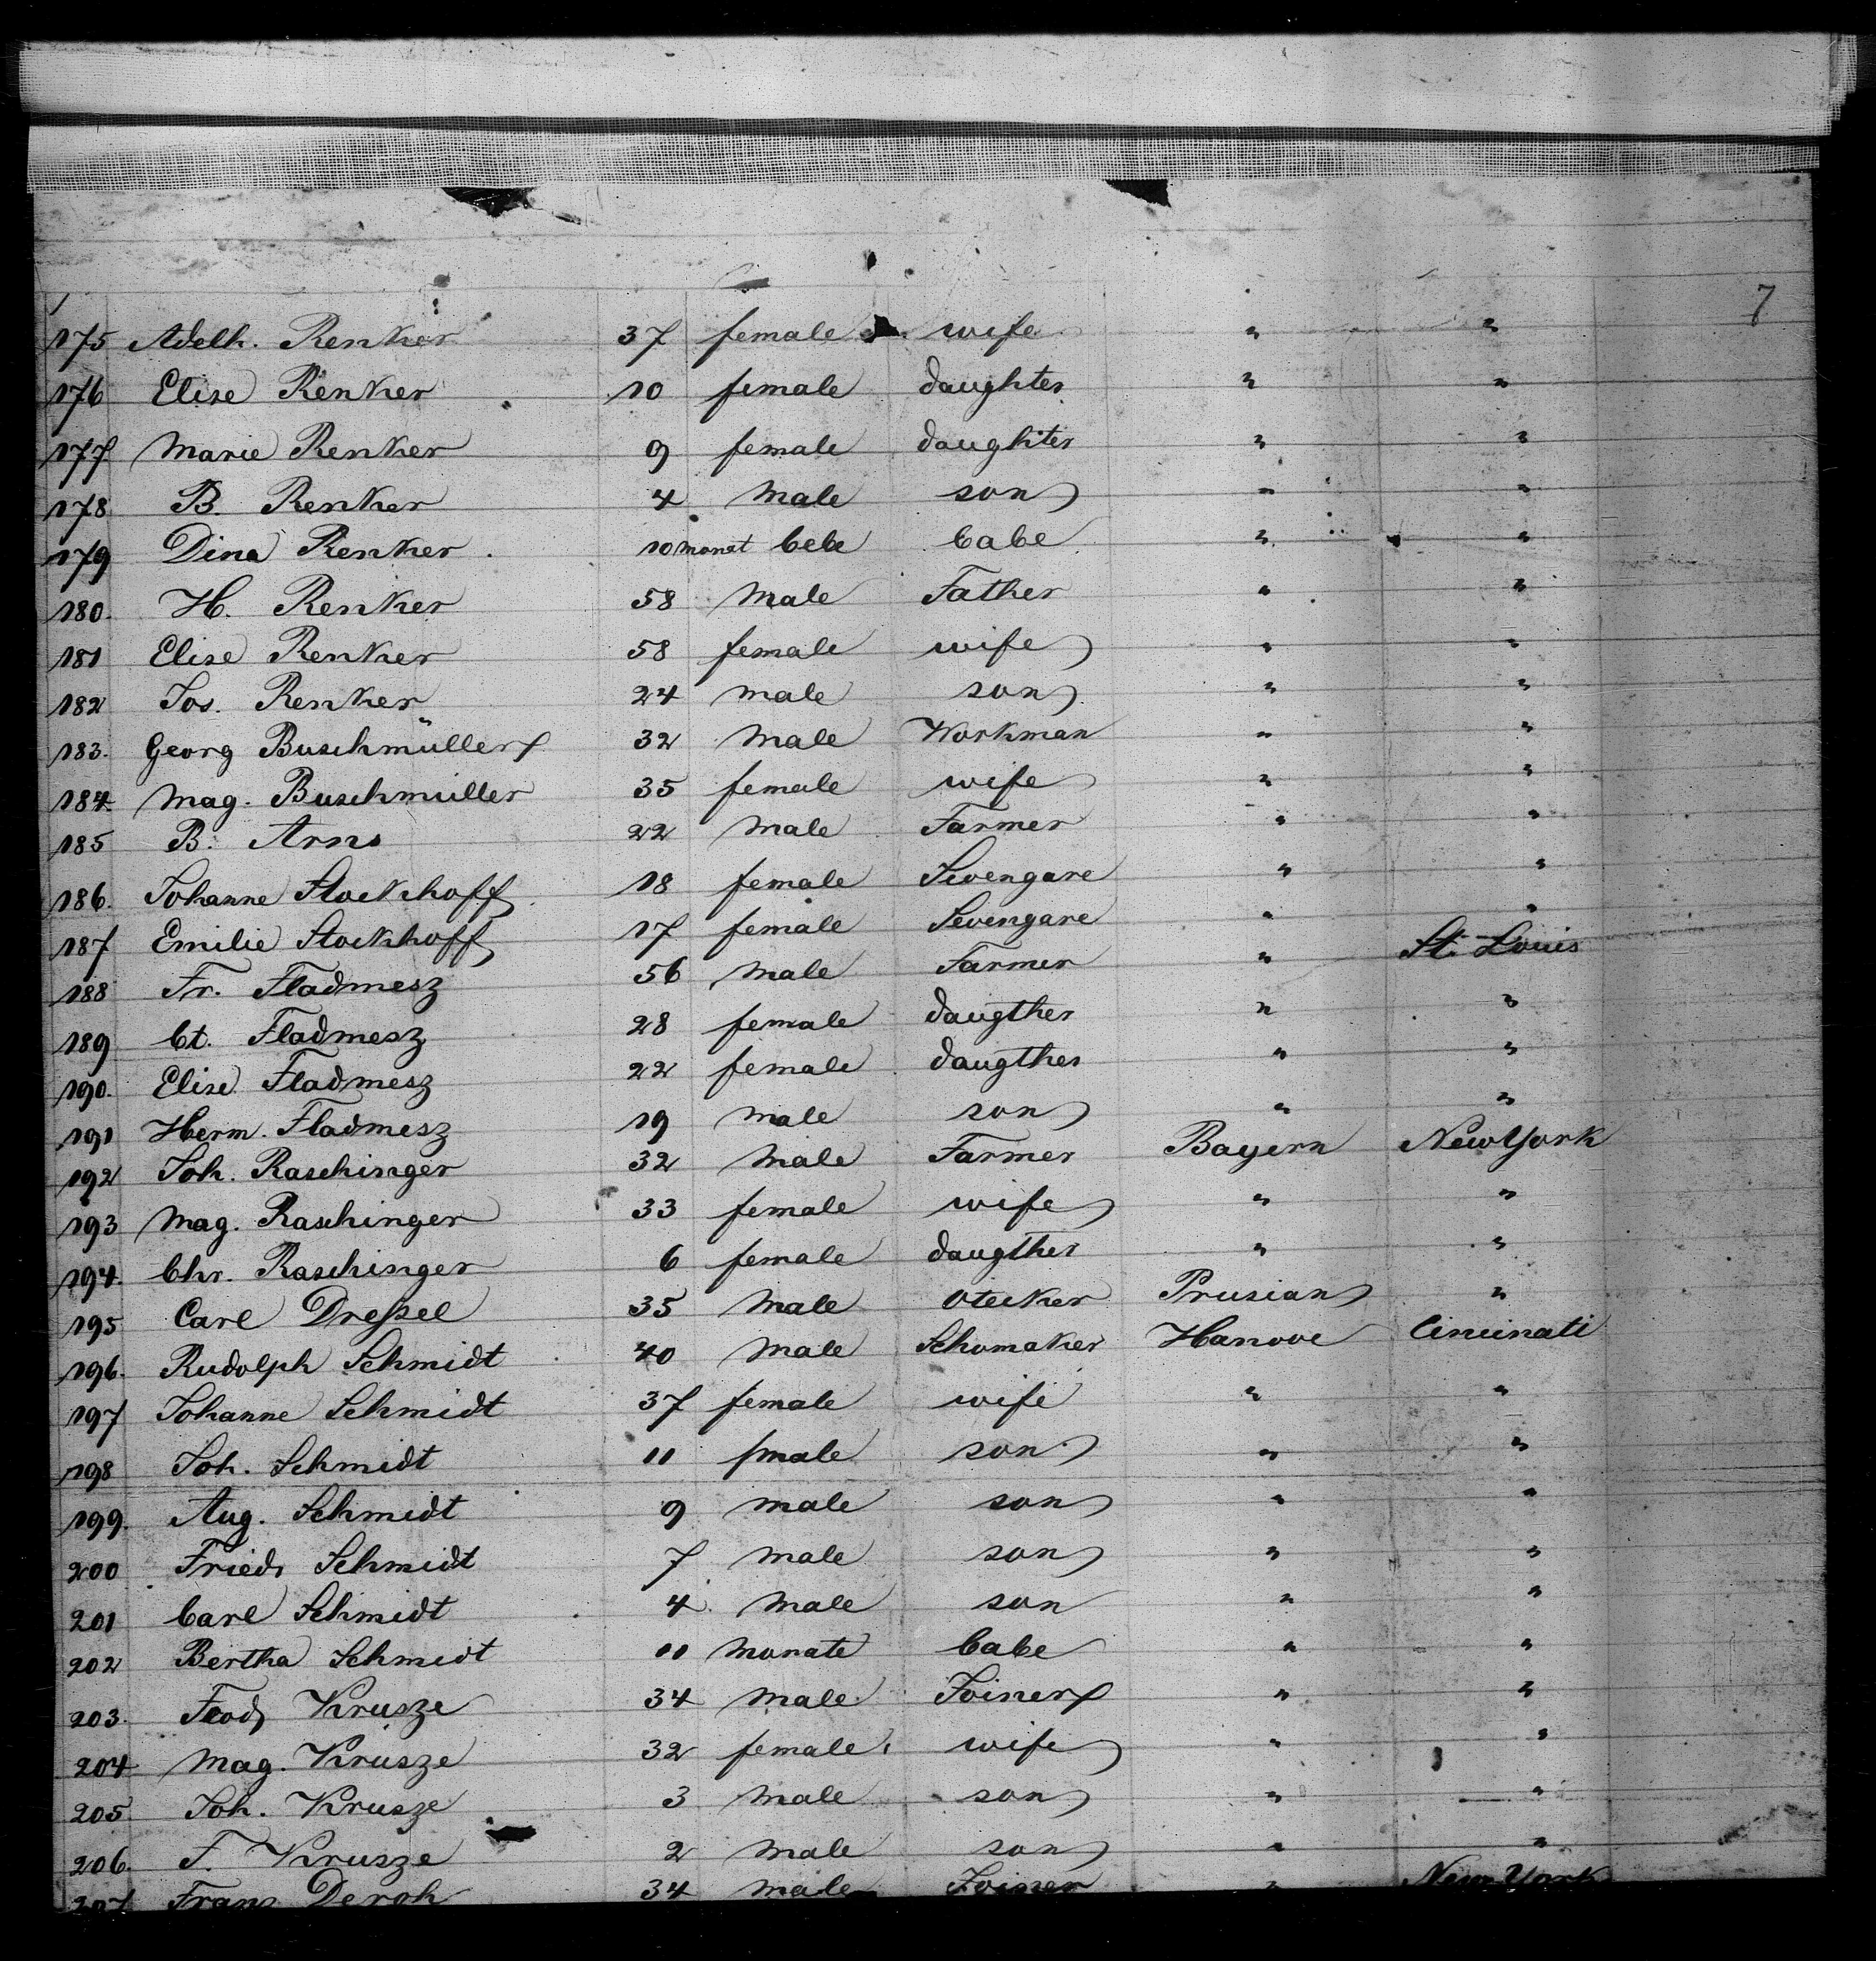 7
175 Adelh. Renker 37 female wife " "
176 Elise Renker 10 female daughter " "
177 Marie Renker 9 female daughter " "
178 B. Renker 4 Male son " "
179 Dina Renker 10 monat bebe babe " "
180. H. Renker 58 Male Father " "
181 Elise Renker 58 female wife " "
182 Jos. Renker 24 male son " "
183. Georg Buschmüller 32 Male Workman " "
184. Mag. Buschmüller 35 female wife " "
185 B. Arns 22 Male Farmer " "
186. Johanne Stockhoff 18 female Sevengare " "
187 Emilie Stockhoff 17 female Sevengare " "
188 Fr. Fladmesz 56 Male Farmer " St. Louis
189 Ct. Fladmesz 28 female daugther " "
190. Elise Fladmesz 22 female daugther " "
191 Herm. Fladmesz 19 male son " "
192 Joh. Raschinger 32 Male Farmer Bayern New York
193 Mag. Raschinger 33 female wife " "
194. Chr. Raschinger 6 female daugther " "
195 Carl Dreßel 35 Male Prusian "
196. Rudolph Schmidt 40 Male Schomaker Hanove Cincinati
197 Johanne Schmidt 37 female wife " "
198 Joh. Schmidt 11 male son " "
199. Aug. Schmidt 9 male son " "
200 Friedr Schmidt 7 male son " "
201 Carl Schmidt 4 Male son " "
202 Bertha Schmidt 11 Monate babe " "
203. Krusze 34 Male Joiner " "
204 Mag. Krusze 32 female wife " "
205 Joh. Krusze 3 Male son " "
206. F. Krusze 2 Male son " "
207 Franz Deroh 34 male Joiner " New York